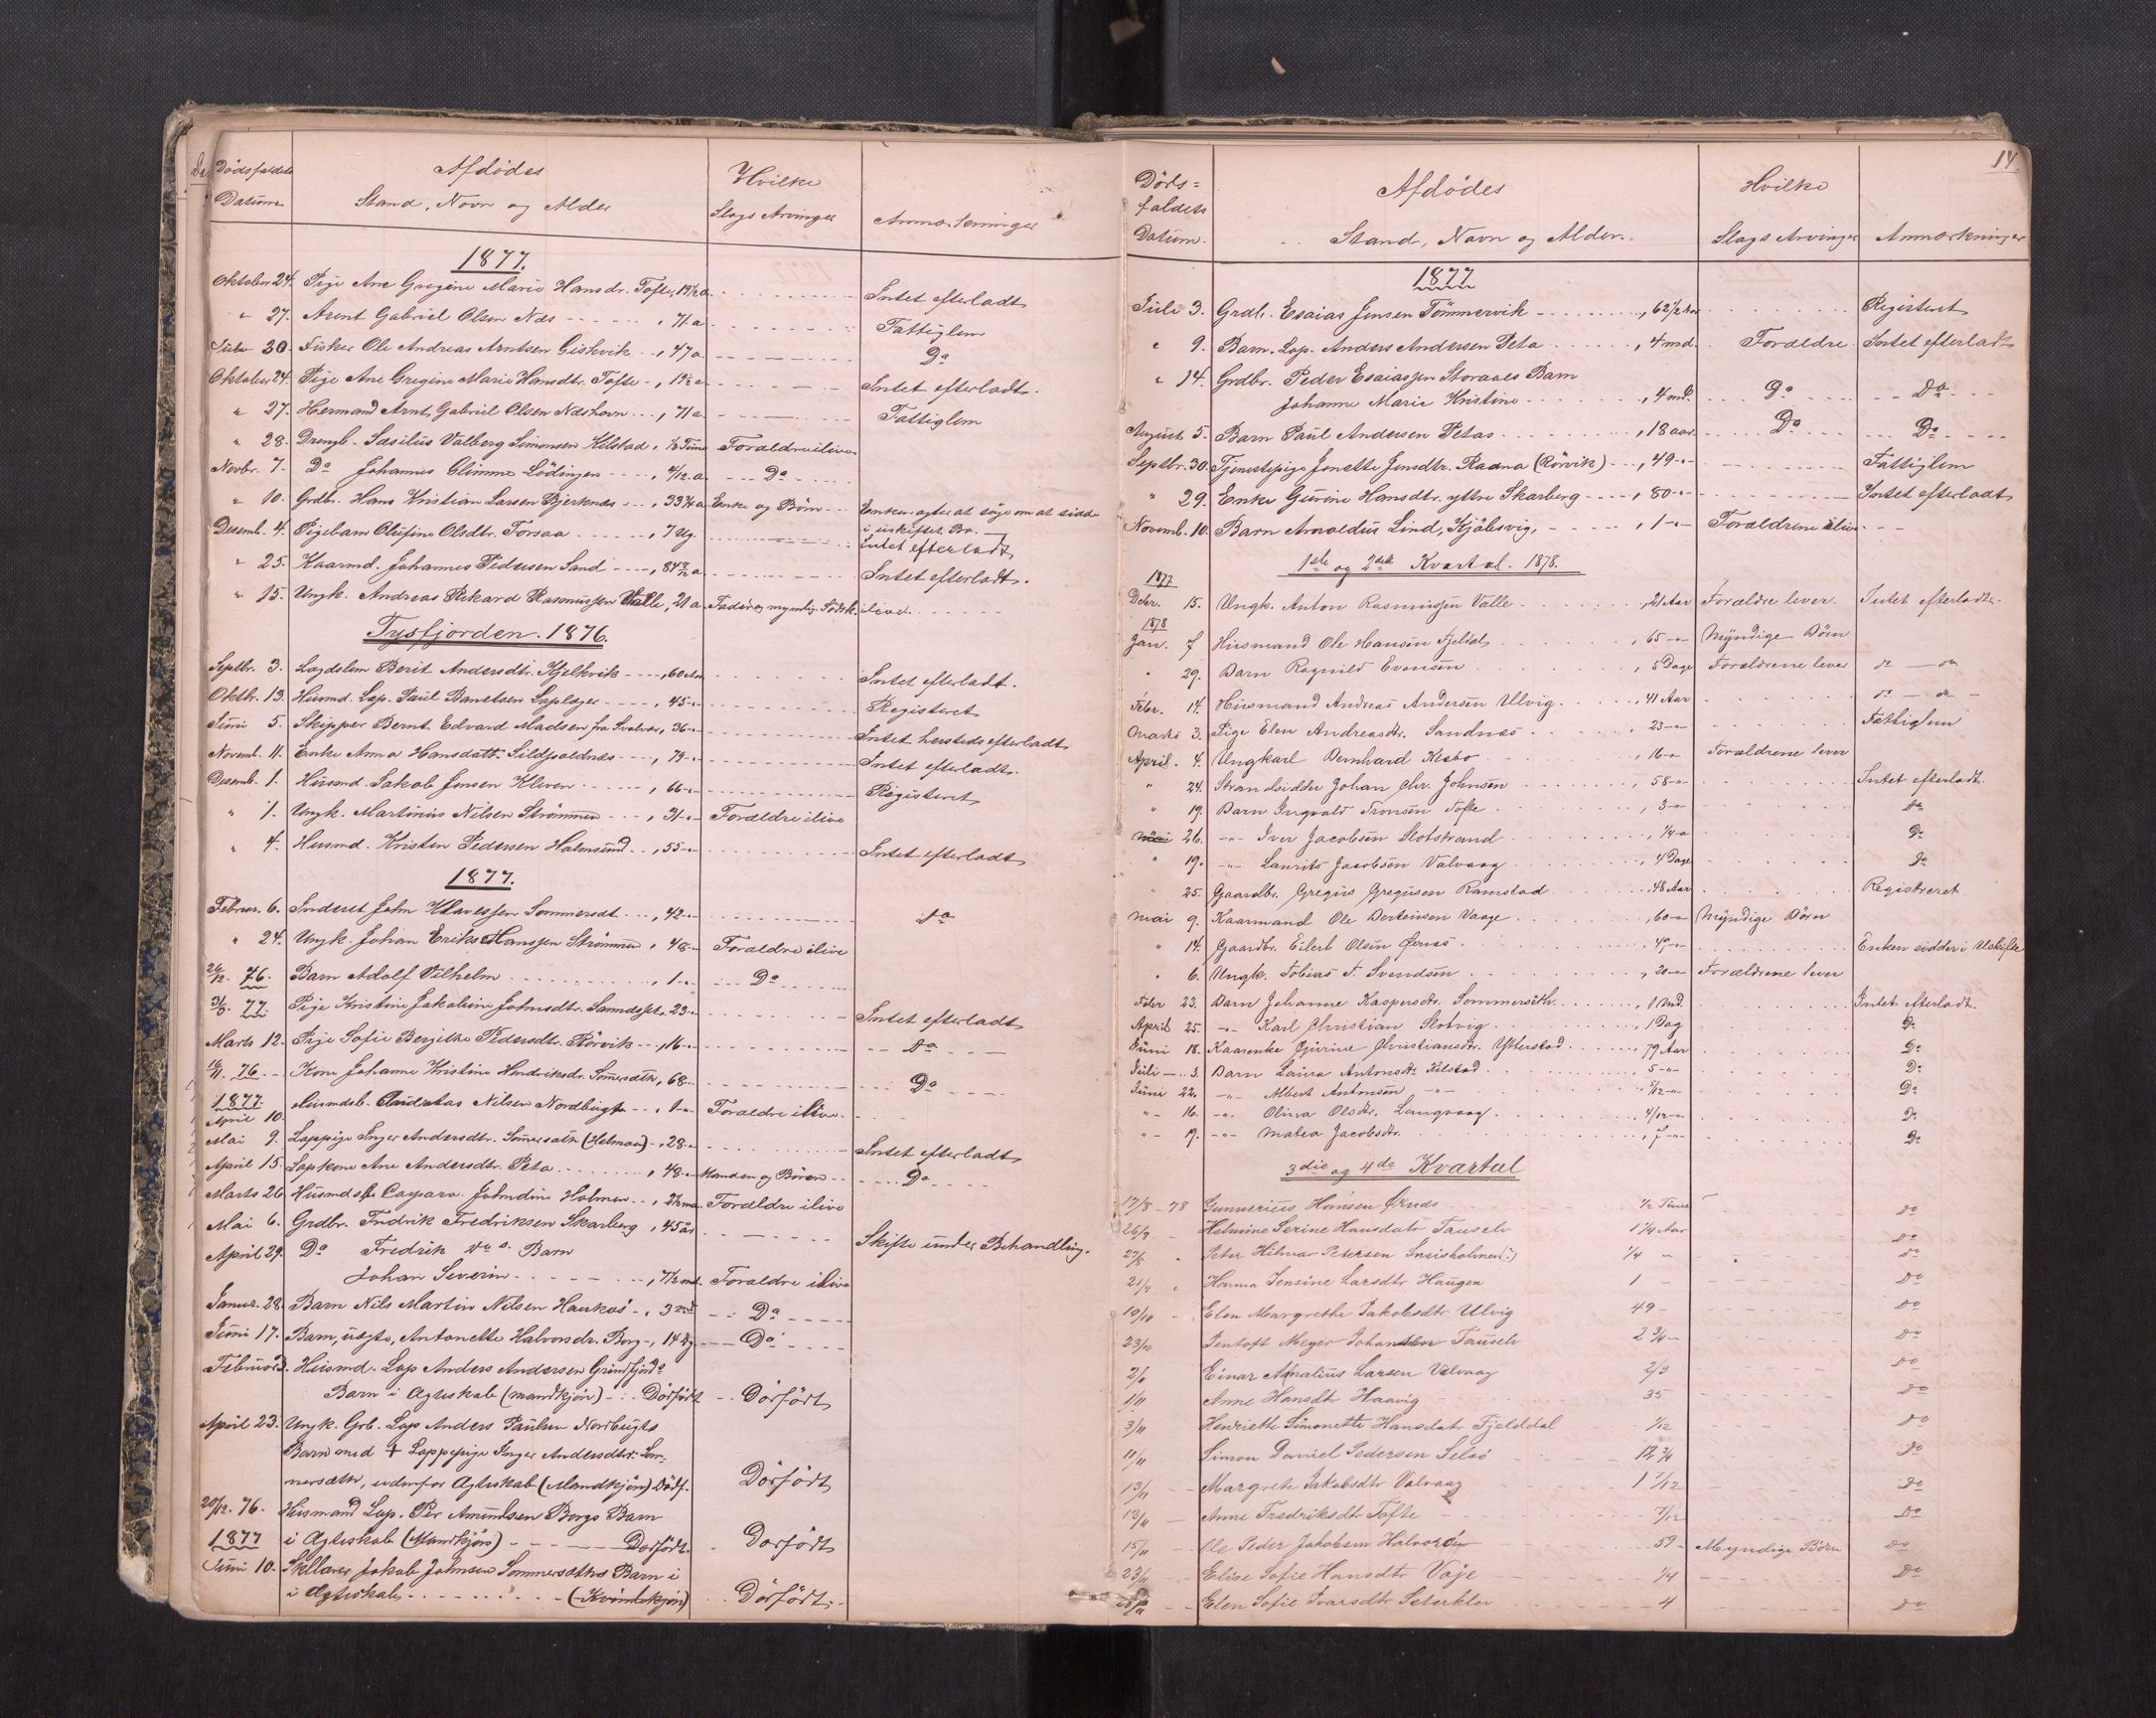 Dødsfaldets Datum
Afdødes Stand, Navn og Alder
Hvilke Slags Arvinger
Anmærkninger
1877.
Oktober 24. Pige Ane Gregine Marie Hansdr. Tofte, 19½ a. Intet efterladt
" 27. Arent Gabriel Olsen Næs , 71 a. Fattiglem
30. Fisker Ole Andreas Arntsen Giskvik , 47 a. Do
Oktober 24. Pige Ane Gregine Marie Hansdtr. Tofte , 19½ a. Intet efterladt.
" 27. Hermand Arnt Gabriel Olsen Næshavn , 71 a. Fattiglem
" 28. Drengb. Valberg Simonsen Kilstad , ½ Time Forældre ilive
Novbr. 7. Do Johannes Glimme Lødingen , 4/12 a. Do
" 10. Grdbr. Hans Kristian Larsen Bjerknæs , 33¾ a. Enke og Børn Enken agter at søge om at sidde
i uskiftet Bo.
Desemb. 4. Pigebarn Olufine Olsdtr. Forsaa , 7 Ug. Intet efterladt
" 25. Kaarmd. Johannes Pedersen Sand , 84 a. Intet efterladt.
" 15. Ungk. Andreas Rikard Rasmussen Valle, 21 a. Fader og myndig Sødsk. ilive.
Tysfjorden. 1876.
Septbr. 3. Lægdslem Berit Andersdtr. Kjelkvik , 60 Aar Intet efterladt.
Oktbr. 13. Husmd. Lap. Paul Leplager , 45 -"- Registeret
Juni 5. Skipper Bernt Edvard Madsen fra Svolvær, 36 -"- Intet hersteds efterladt
Novemb. 11. Enke Anna Hansdatt. , 79 -"- Intet efterladt.
Desemb. 1. Husmd. Jakob Jensen Kleven , 66 -"- Registeret
" 1. Ungk. Martinus Nilsen Strømmen , 31 -"- Forældre ilive
" 4. Husmd. Kristen Pedersen Holmsund , 55 -"- Intet efterladt
1877.
Februar. 6. Inderst John Sommersæt , 42 -"- Do
" 24. Ungk. Johan Eriks Hanssen Strømmen , 48 -"- Forældre ilive
26/12. 76. Barn Adolf Vilhelm , 1 -"- Do
31/3. 77. Pige Kristine Jakobine Johnsdtr. , 23 -"- Intet efterladt
Marts 12. Pige Sofie Bergitha Pedersdtr. Rørvik , 16 -"- Do
76. Kone Johanne Kristine Hendriksdr. Somersæth , 68 -"- Do
1877.
April 10. Husmdsb. Nilsen Nordbugt , 1 -"- Forældre ilive
Mai 9. Lappige Inger Andersdtr. Somersæth (Helmoen) , 28 -"- Intet efterladt
April 15. Lapkone Ane Andersdtr. Peta , 48 -"- Manden og Børen Do
Marts 26. Husmdsb. Caspara Johndine Holmen Forældre ilive
Mai 6. Grdbr. Fredrik Fredriksen Skarberg , 45 år Skifte under Behandling.
April 29. Do Fredrik Do s. Barn
Johan Severin Forældre ilive
Januar. 28. Barn Nils Martin Nilsen Haukøs , 3 Do
Juni 17. Barn, uægte, Antonette Halvorsdr. Borg , 14 Dg. Do
Februar 3. Husmd. Lap Anders Andersen Grindfjord
Barn i Ægteskab (mandkjøn) Dødfødt Dødfødt
April 23. Ungk. Grb. Lap Anders Paulsen Nordbugts
Barn med † Lappepige Inger Andersdtr. Som-
mersæth, udenfor Ægteskab (Mandkjøn) Dødf. Dødfødt
20/12. 76. Husmand Lap. Per Amundsen Borgs Barn
1877 i Ægteskab (Mandkjøn) Dødfødt. Dødfødt
Juni 10. Jakob Johnsen Sommersæths Barn i
i Ægteskab (Kvindekjøn) Dødfødt.
14.
Døds-faldets Datum.
Afdødes Stand, Navn og Alder.
Hvilke Slags Arvinger
Anmærkninger
1877
Juli 3. Grdb. Esaias Jensen Tømmervik , 62½ Aar Registeret
" 9. Barn. Lap. Anders Andersen Peta , 4 md. Forældre Intet efterladt
" 14. Grdbr. Peder Esaiassen Storaaes Barn
Johanne Marie Kristine , 4 md. Do Do
August 5. Barn Paul Andersen Petas , 18 aar. Do Do
Septbr. 30. Tjenestepige Jonette Jensdtr. Raana (Rørvik) , 49 -"- Fattiglem
" 29. Enke Gurine Hansdtr. yttre Skarberg , 80 -"- Intet efterladt
Novemb. 10. Barn Arnoldus Lind, Kjøbsvig, , 1 -"- Forældrene ilive
1ste og 2det Kvartal. 1878.
1877
Dcbr. 15. Ungk. Anton Rasmussen Valle , 21 Aar Forældre lever. Intet efterladt.
1878
Jan. 7 Husmand Ole Hansen Fjeldal , 65 -"- Myndige Børn
" 29. Barn Ragnild Evensen , 5 Dage Forældrene lever do — do
Febr. 14. Husmand Andreas Andersen Ulvig , 41 Aar do — do —
Marts 3. Pige Elen Andreasdtr. Sandnæs , 23 -"- Fattiglem
April. 4. Ungkarl Bernhard Kesbo , 16 -"- Forældrene lever
" 24. Strandsidder Johan Chr. Johnsen , 58 -"- Intet efterladt.
" 19. Barn Ingvald Tronsen Tofte , 3 -"- Do
26. -"- Iver Jacobsen Slotstrand , ¼ -"- Do
" 19. -"- Laurits Jacobsen Valvaag , 4 Dage Do
" 25. Gaardbr. Gregus Gregusen Ramstad , 48 Aar Registreret
Mai 9. Kaarmand Ole Berteusen Vaage , 60 -"- Myndige Børn
" 14. Gaardbr. Eilert Olsen Øvnes , 49 -"- Enken sidder i Uskifte
" 6. Ungk. Tobias T. Svendsen , 20 -"- Forældrene lever
Feber 23. Barn Johanne Kaspersdtr. Sommersæth , 1 Md. Intet efterladt.
April 25. -"- Karl Christian Slotvig , 1 Dag Do
Juni 18. Kaarenke Gjurine Christiansdtr. Ytterstad , 79 Aar Do
Juli 3. Barn Laura Antonsdtr. Kilstad , 5 -"- Do
Juni 22. -"- Albert Antonsen -"- , 5/12 -"- Do
" 16. -"- Olina Olsdtr. Langvaag , 4/12 -"- Do
" 19. -"- Matea Jacobsdtr. , 7 -"- Do
3die og 4de Kvartal
17/8 - 78 Gunnerius Hansen Ørnes ½ Time Do
26/9 - Helmine Serine Hansdatr Tauselv 1¼ Aar Do
27/8 " Peter Hilmar Petersen Sneisholmen (?) ¼ - Do
21/9 " Hanna Jensine Larsdtr Haugen 1 - Do
10/10 - Elen Margrethe Jakobsdtr Ulvig 49 - Do
23/10 Pentoft Meyer Johan Tauselv 2¾ - Do
Einar Amalius Larsen Valvaag 2/3 Do
1/11 Anne Hansdtr Haavig 35 Do
3/11 Henriette Simonette Hansdatr Fjelddal 1/12 Do
11/11 Simon Daniel Pedersen Selsø 12¾ Do
13/11 - Margrete Jakobsdtr Valvaag 1 7/12 Do
13/11 - Anne Fredriksdtr Tofte 7/12 Do
15/11 - Ole Peder Jakobsen Halvorsøen 59 - Myndige Børn Do
23/11 - Elise Sofie Hansdtr Vaje ¼ Do
- Elen Sofie Ivarsdtr 4 Do